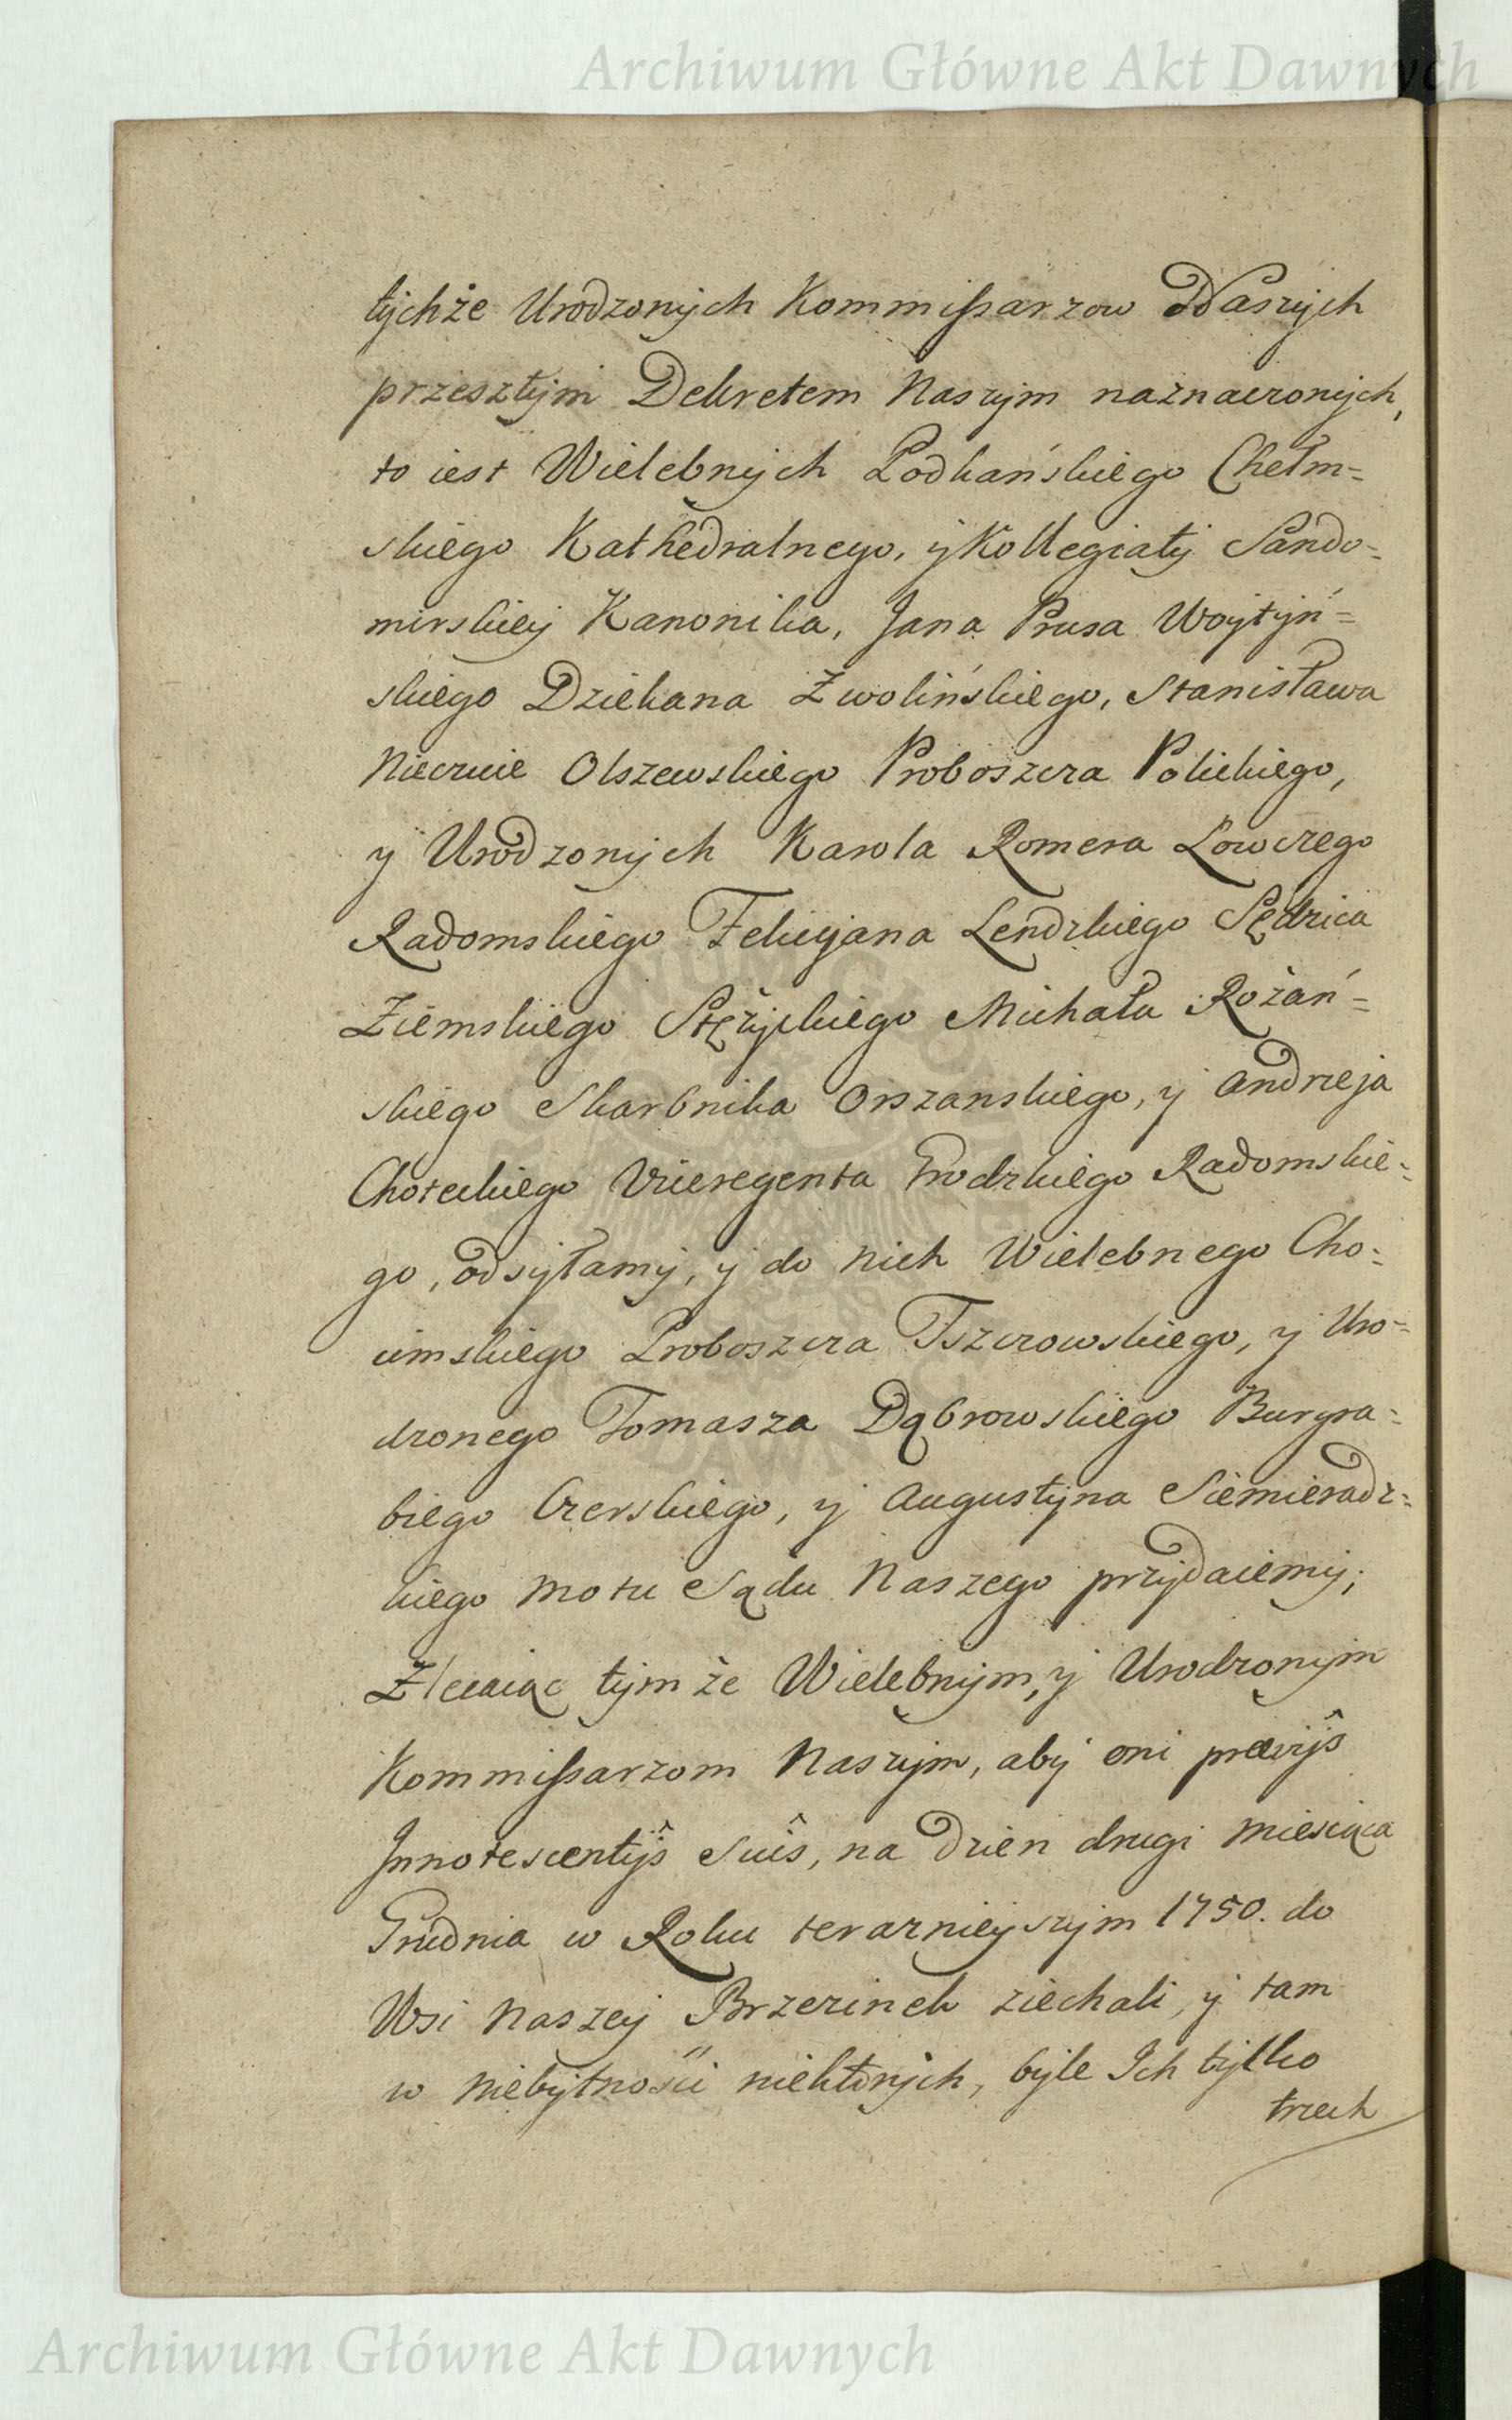 Archiwum Główne Akt Dawnych
tychże Urodzonych Kommissarzow Naszych
przesztym Dekretem Naszym naznaczonych,
to iest Wielebnych Podkańskiego Chełm=
skiego Kathedralnego, y Kollegiaty Sando=
mirskiey Kanonika, Jana Prusa Woytyń=
skiego Dziekana Zwolińskiego, Stanisława
Nieczuie Olszewskiego Proboszcza Polickiego,
y Urodzonych Karola Romera Łowczego
Radomskiego Felicyana Lendzkiego Sędzica
Ziemskiego Stężyckiego Michała Rożań=
skiego Skarbnika Orszanskiego, y Andrzeja
Choteckiego Viceregenta Grodzkiego Radomskie=
go, odsyłamy, y do nich Wielebnego Cho=
cimskiego Proboszcza Jszczowskiego, y Uro=
dzonego Tomasza Dąbrowskiego Burgra=
biego Czerskiego, y Augustyna Siemieradz=
kiego motu Sądu Naszego przydaiemy;
Zlecaiąc tymże Wielebnym, y Urodzonym
Kommissarzom Naszym, aby oni præviis
Innotescentijs Suis, na dzien drugi Miesiąca
Grudnia w Roku terazniejszym 1750. do
Wsi Naszey Brzezinek ziechali, y tam
w niebytności niektórych, byle Ich tylko
trzech
Archiwum Główne Akt Dawnych